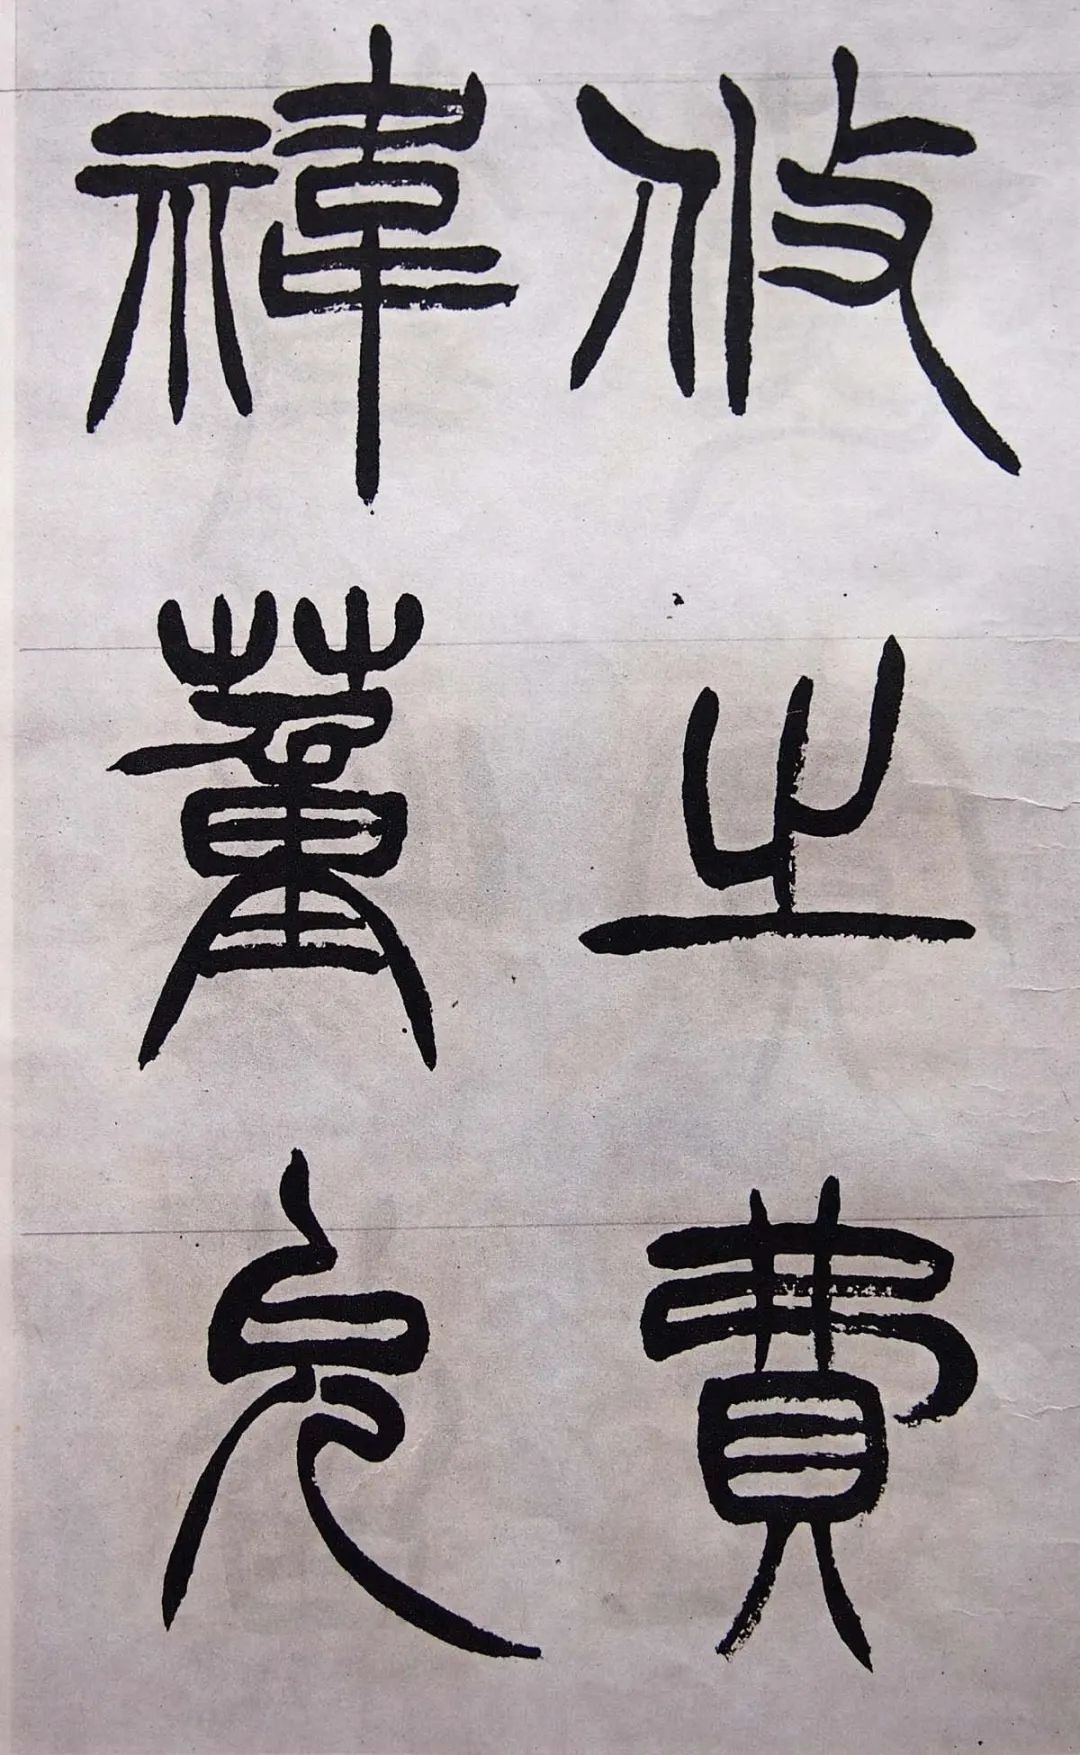 攸之費
禕董允